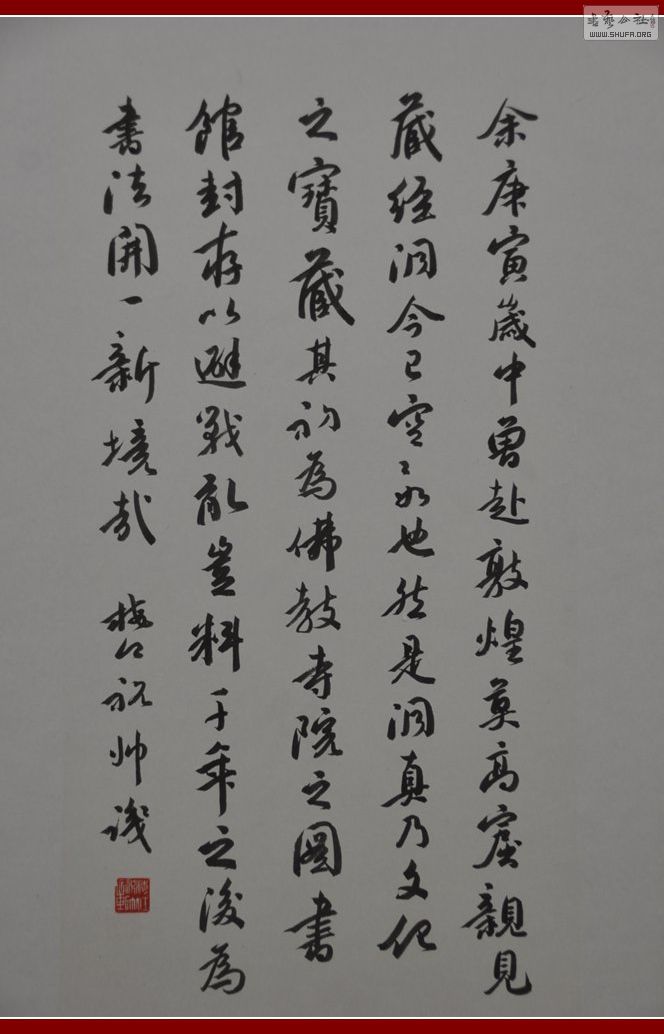 余庚寅歲中曾赴敦煌莫高窟親見
藏經洞今已空空如也然是洞真乃文化
之寶藏其初為佛教寺院之圖書
館封存以避戰亂豈料千年之後為
書法開一新境哉 梅仁祝帅識
書藝公社
WWW.SHUFA.ORG